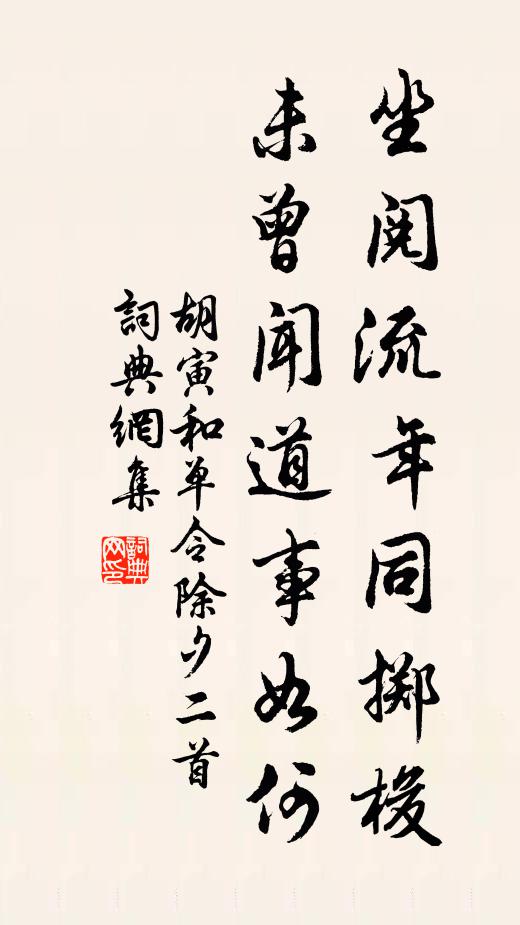 坐閱流年同擲梭
未曾聞道事如何
胡寅和单令除夕二首
詞典網集
詞典网印